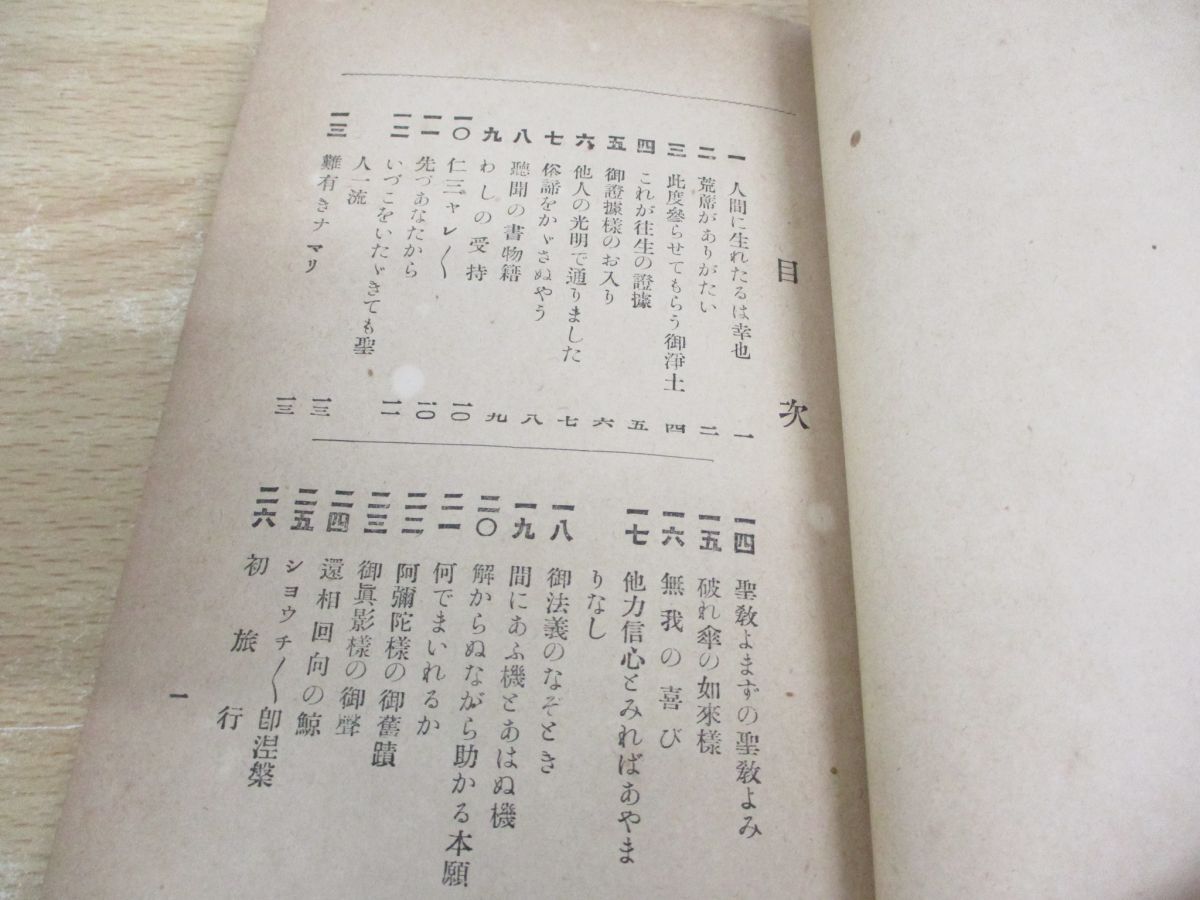 目次
一 人間に生れたるは幸也 一
二 荒席がありがたい 二
三 此度參らせてもらう御淨土 四
四 これが往生の證據 五
五 御證據樣のお入り 六
六 他人の光明で通りました 七
七 俗諦をかゞさぬやう 八
八 聽聞の書物籍 九
九 わしの受持 一〇
一〇 仁三ャレ〱 一〇
一一 先づあなたから 一二
一二 いづこをいたゞきても聖
人一流 一三
一三 難有きナマリ 一三
一四 聖敎よまずの聖敎よみ
一五 破れ傘の如來樣
一六 無我の喜び
一七 他力信心とみればあやま
りなし
一八 御法義のなぞとき
一九 間にあふ機とあはぬ機
二〇 解からぬながら助かる本願
二一 何でまいれるか
二二 阿彌陀樣の御舊蹟
二三 御眞影樣の御聲
二四 還相回向の鯨
二五 シヨウチ〱卽涅槃
二六 初旅行
一